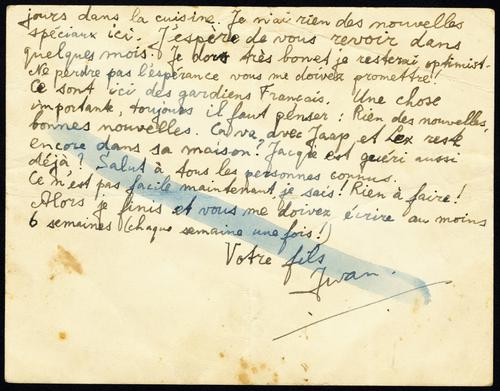 jours dans la cuisine. Je n'ai rien des nouvelles
spéciaux ici. J'espère de vous revoir dans
quelques mois. Je dors très bonet, je resterai optimist.
Ne perdre pas l'espérance vous me doivez promettre!
Ce sont ici des gardiens Français. Une chose
importante, toujours il faut penser: Rien des nouvelles,
bonnes nouvelles. Ca va avec Jaap et Lex reste
encore dans sa maison? Jacqu est guéri aussi
déjà? Salut à tous les personnes connus.
Ce n'est pas facile maintenant, je sais! Rien à faire!
Alors je finis et vous me doivez écrire au moins
6 semaines (chaque semaine une fois!)
Votre fils
Iwan.